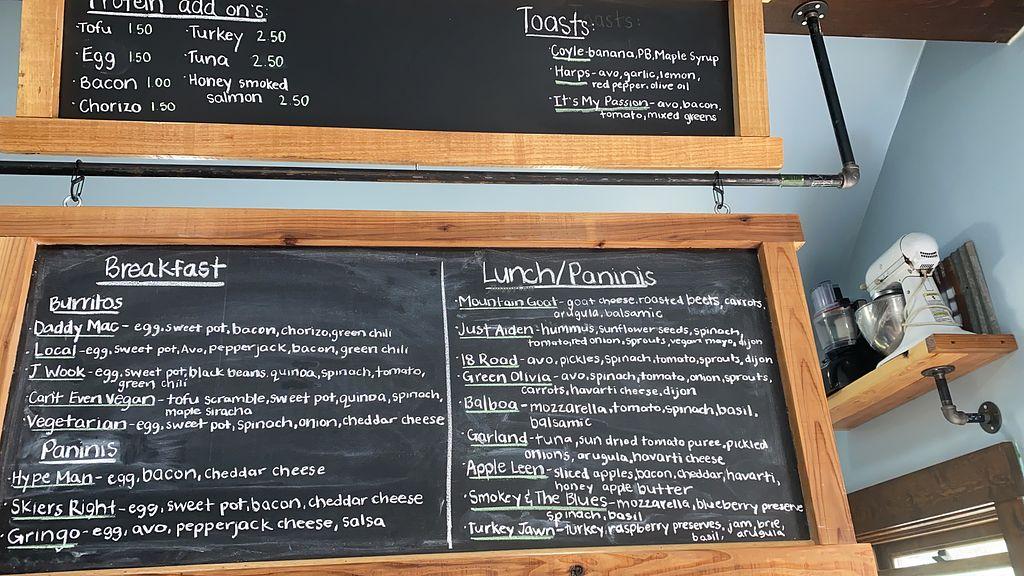 Protein add on's:
Tofu 1.50
Egg 1.50
Bacon 1.00
Chorizo 1.50
Turkey 2.50
Tuna 2.50
Honey smoked
salmon 2.50
Toasts:
Coyle-banana, PB, Maple Syrup
Harps-avo, garlic, lemon,
red pepper, olive oil
It's My Passion-avo, bacon,
tomato, mixed greens
Breakfast
Burritos
Daddy Mac-egg, sweet pot, bacon, chorizo, green chili
Local-egg, sweet pot, Avo, pepperjack, bacon, green chili
J Wook-egg, sweet pot, black beans, quinoa, spinach, tomato,
green chili
Can't Even Vegan-tofu scramble, sweet pot, quinoa, spinach,
maple siracha
Vegetarian-egg, sweet pot, spinach, onion, cheddar cheese
Paninis
Hype Man-egg, bacon, cheddar cheese
Skiers Right-egg, sweet pot, bacon, cheddar cheese
Gringo-egg, avo, pepperjack cheese, salsa
Lunch/Paninis
Mountain Goat-goat cheese, roasted beets, carrots,
arugula, balsamic
Just Aiden-hummus, sunflower seeds, spinach,
tomato, red onion, sprouts, vegan mayo, dijon
18 Road-avo, pickles, spinach, tomato, sprouts, dijon
Green Olivia-avo, spinach, tomato, onion, sprouts,
carrots, havarti cheese, dijon
Balboa-mozzarella, tomato, spinach, basil,
balsamic
Garland-tuna, sun dried tomato puree, pickled
onions, arugula, havarti cheese
Apple Leen-sliced apples, bacon, cheddar, havarti,
honey apple butter
Smokey & The Blues-mozzarella, blueberry preserve
spinach, basil
Turkey Jawn-turkey, raspberry preserves, jam, brie,
basil, arugula